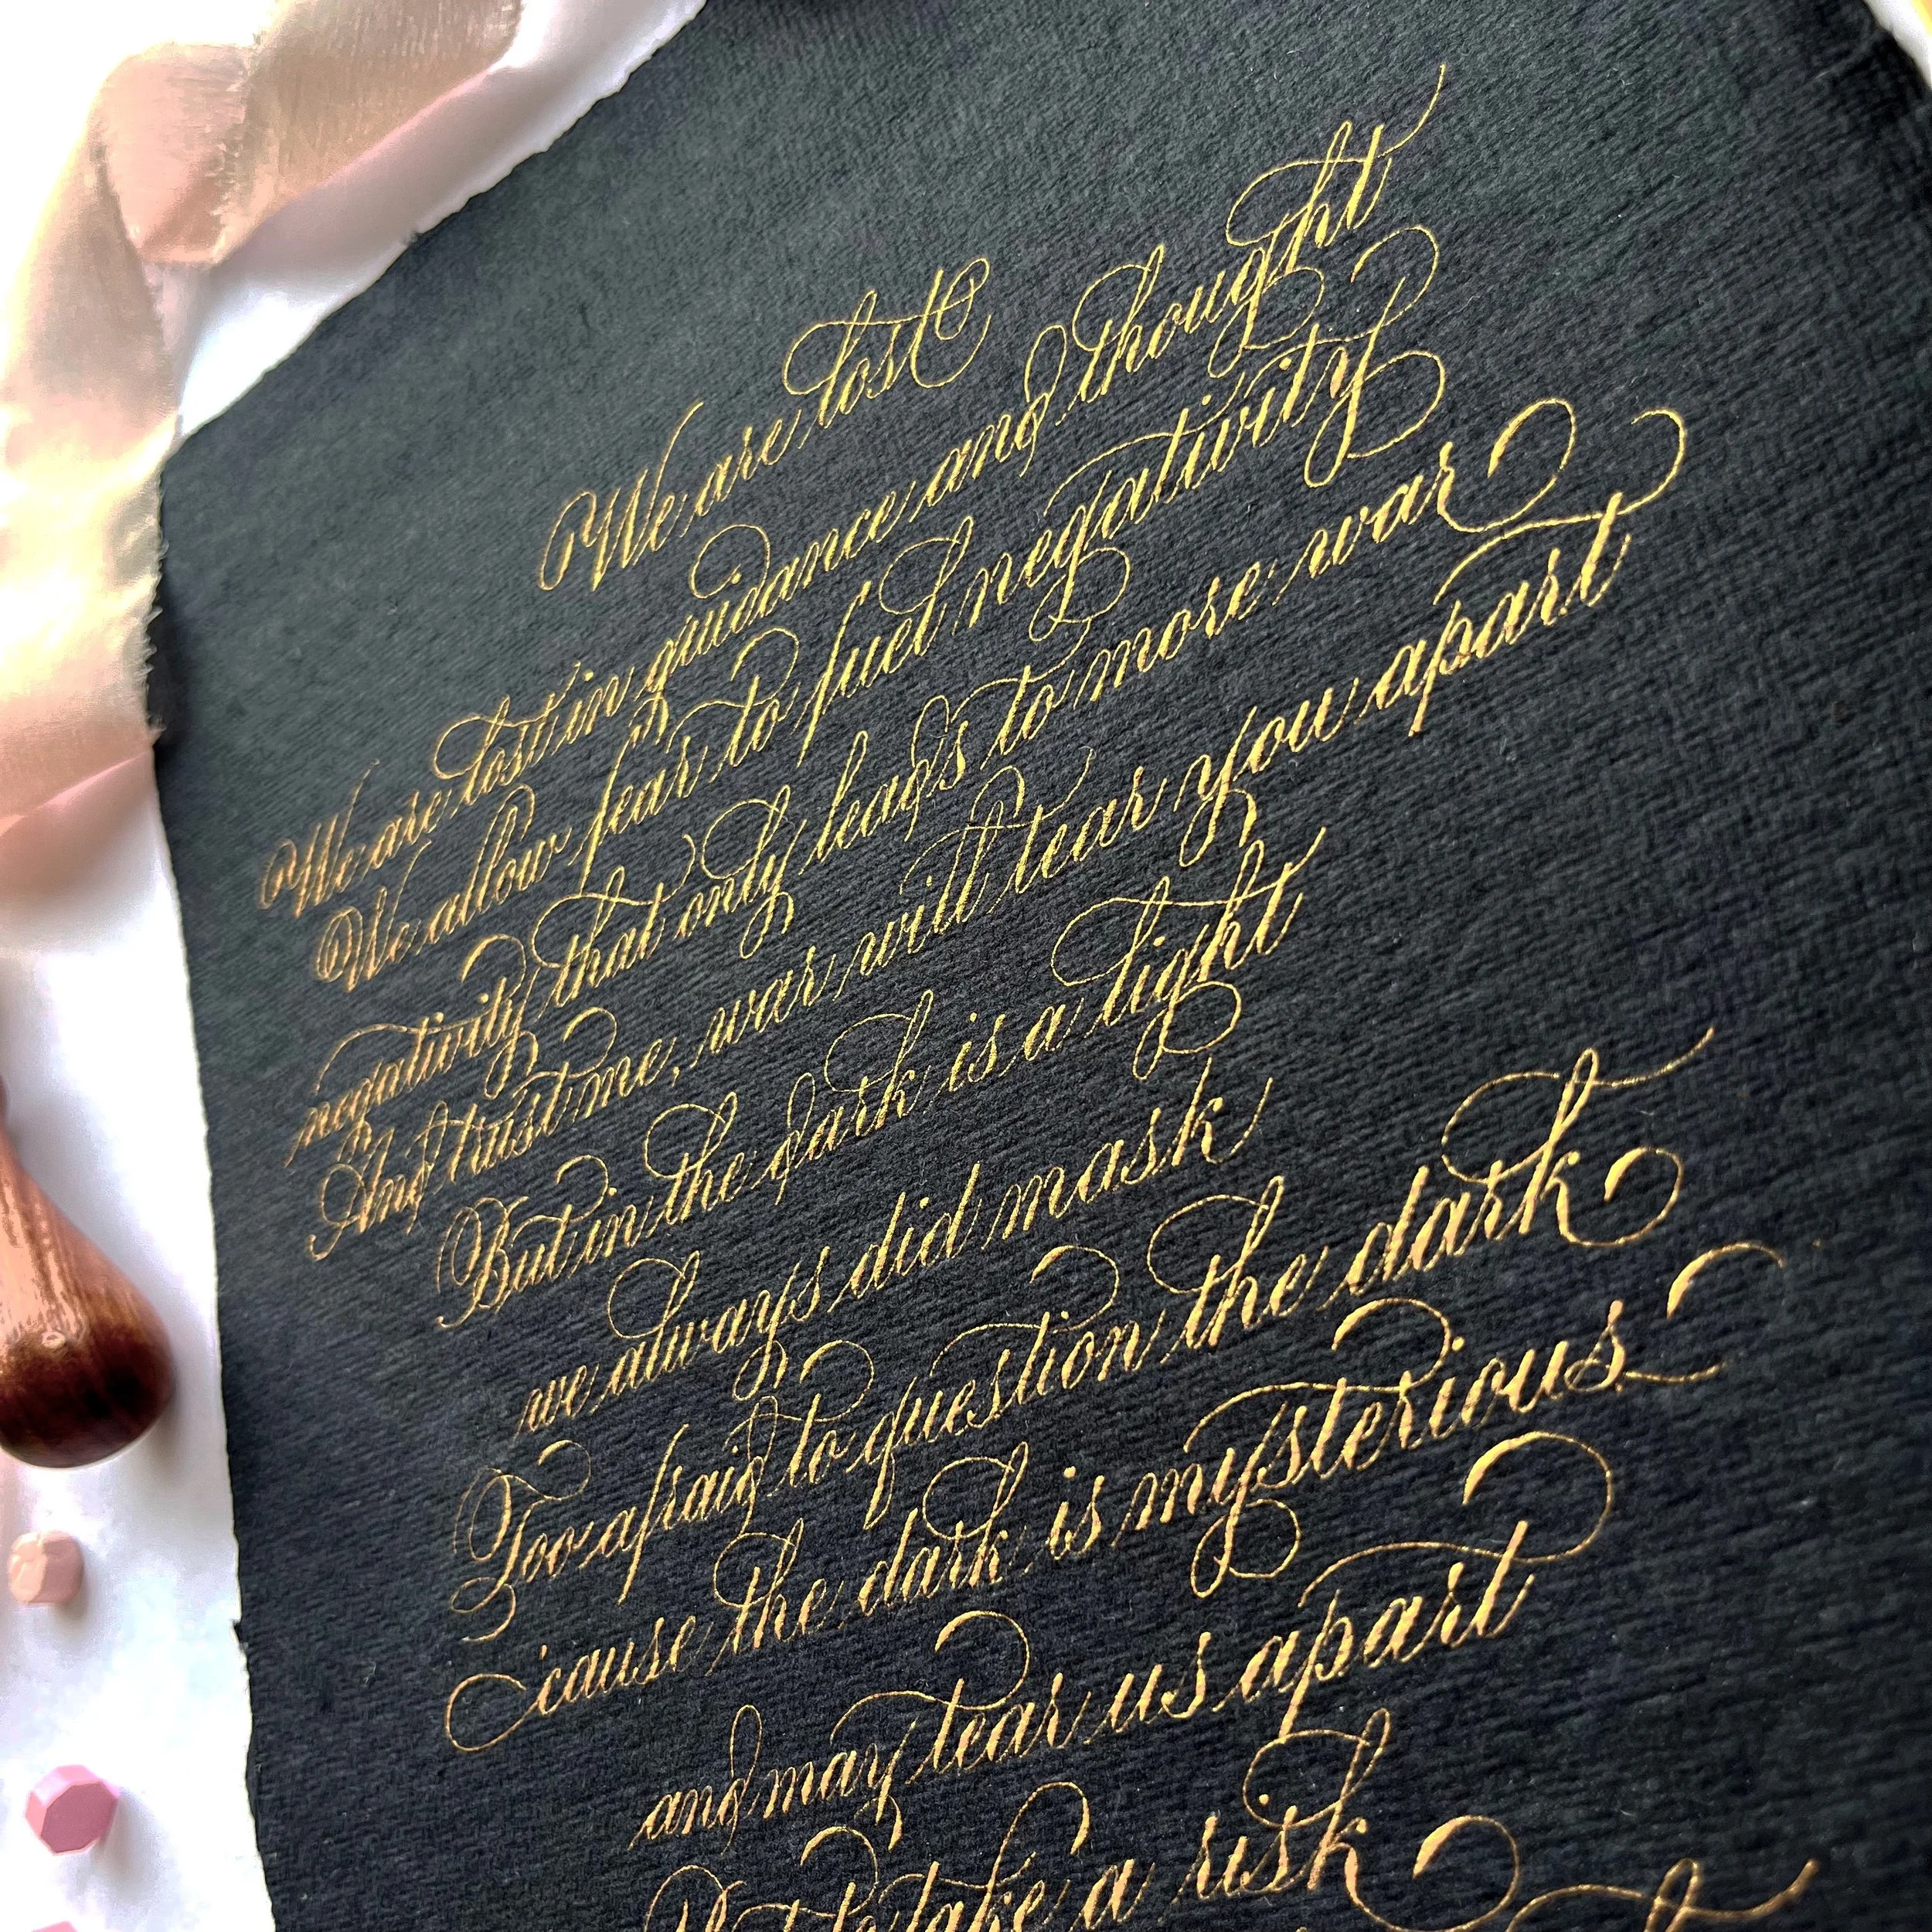 We are lost
We are lost in guidance and thought
We allow fear to fuel negativity
negativity that only leads to more war
And trust me, war will tear you apart
But in the dark is a light
we always did mask
Too afraid to question the dark
'cause the dark is mysterious
and may tear us apart
But to take a risk